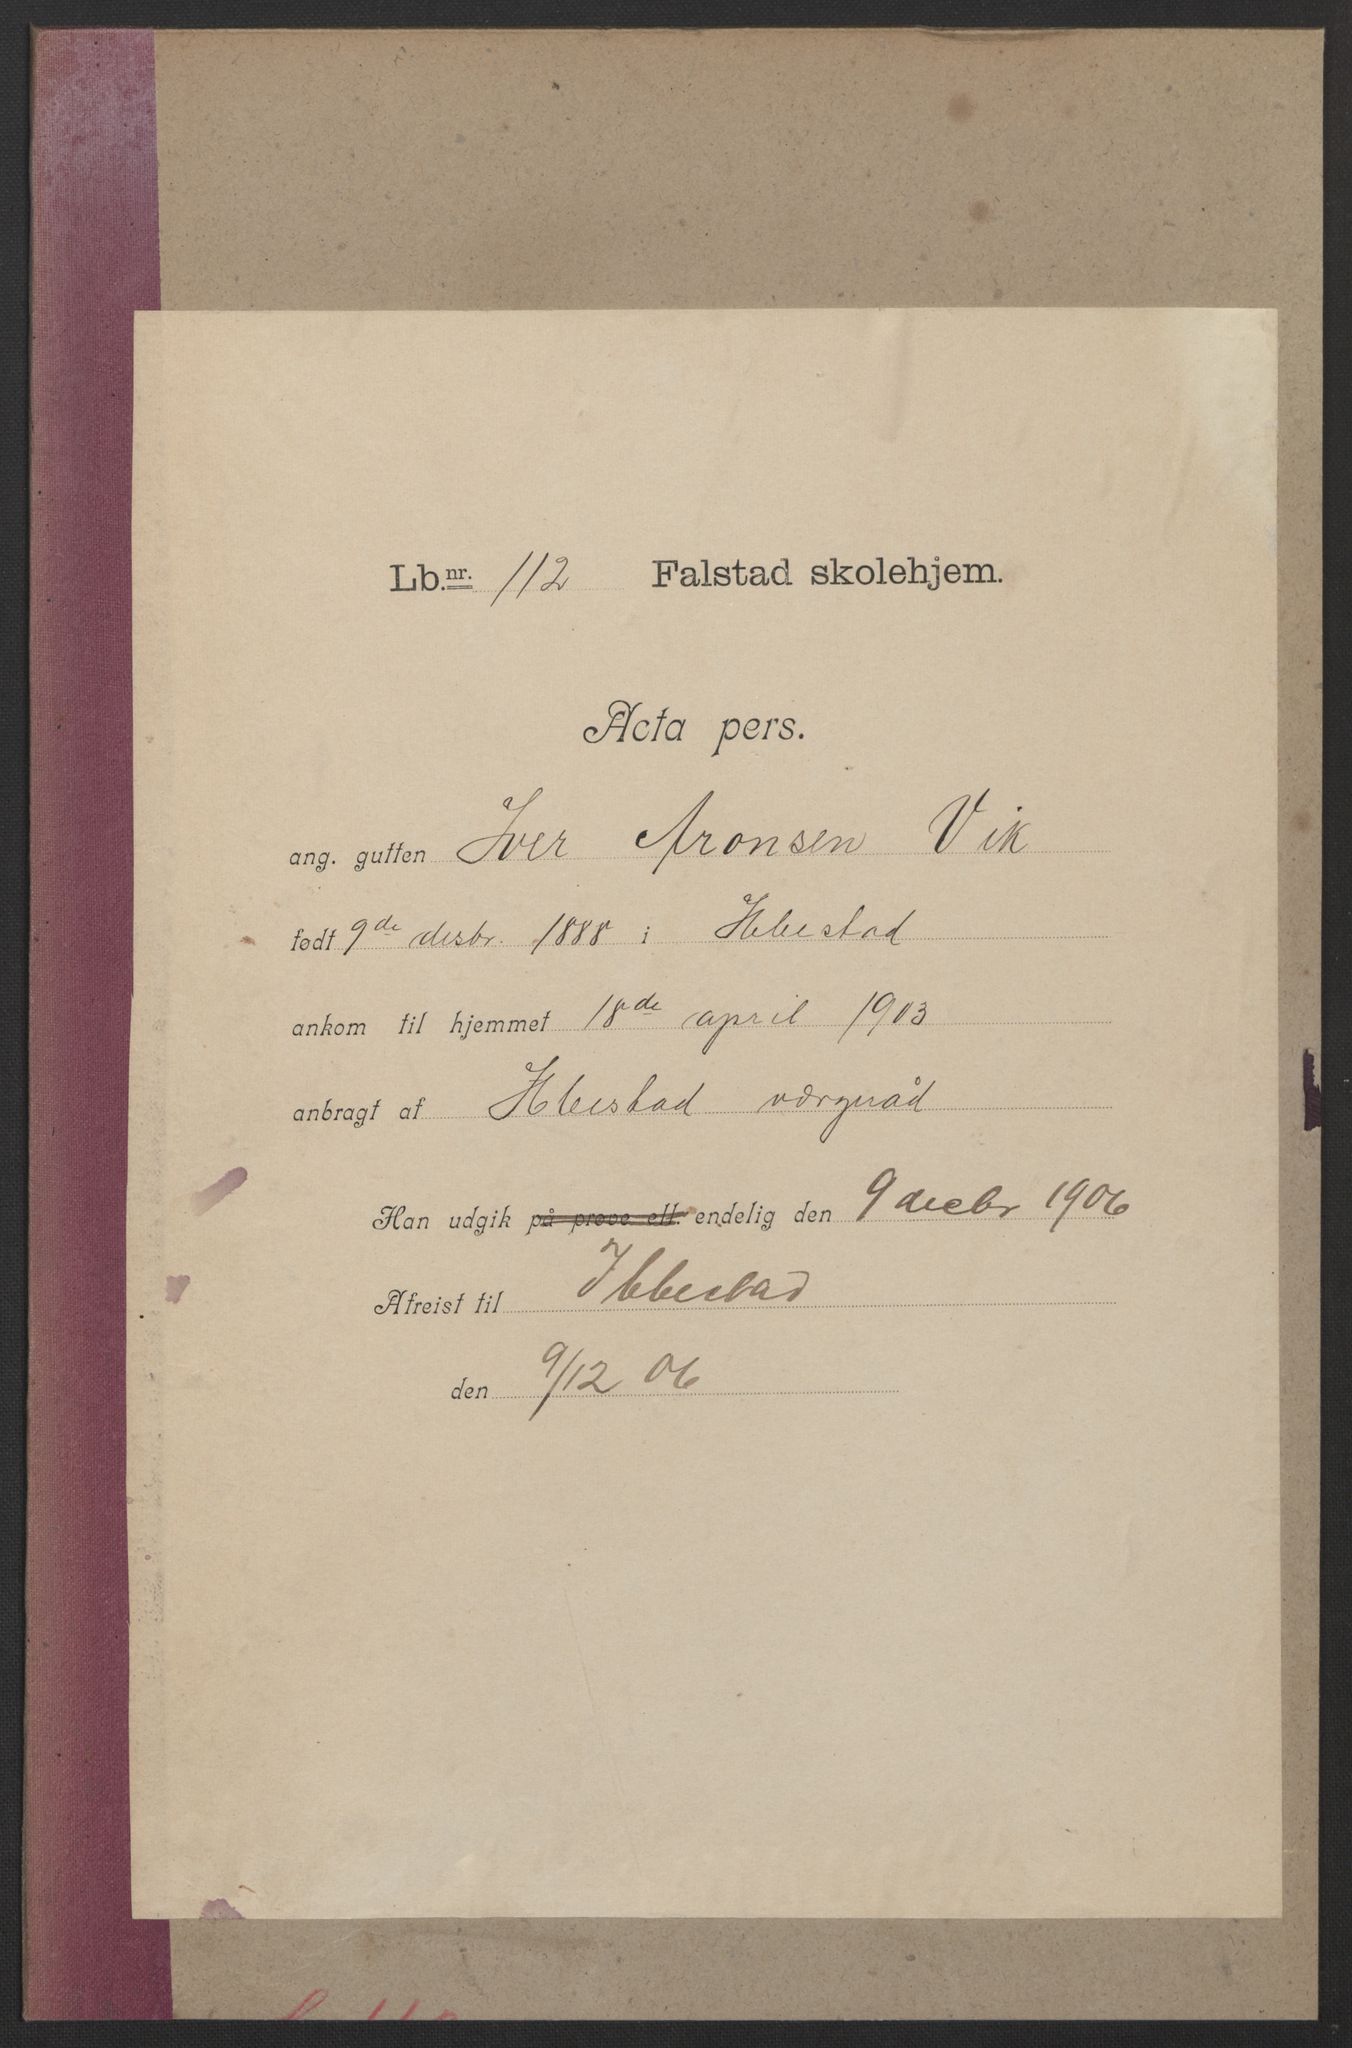 Lb.nr. 112 Falstad skolehjem.
Acta pers.
ang. gutten Iver Aronsen Vik
født 9de desbr. 1888 i Ibbestad
ankom til hjemmet 18de april 1903
anbragt af Ibbestad værgeråd
Han udgik på prøve ell. endelig den 9 decbr 1906
Afreist til Ibbestad
den 9/12 06